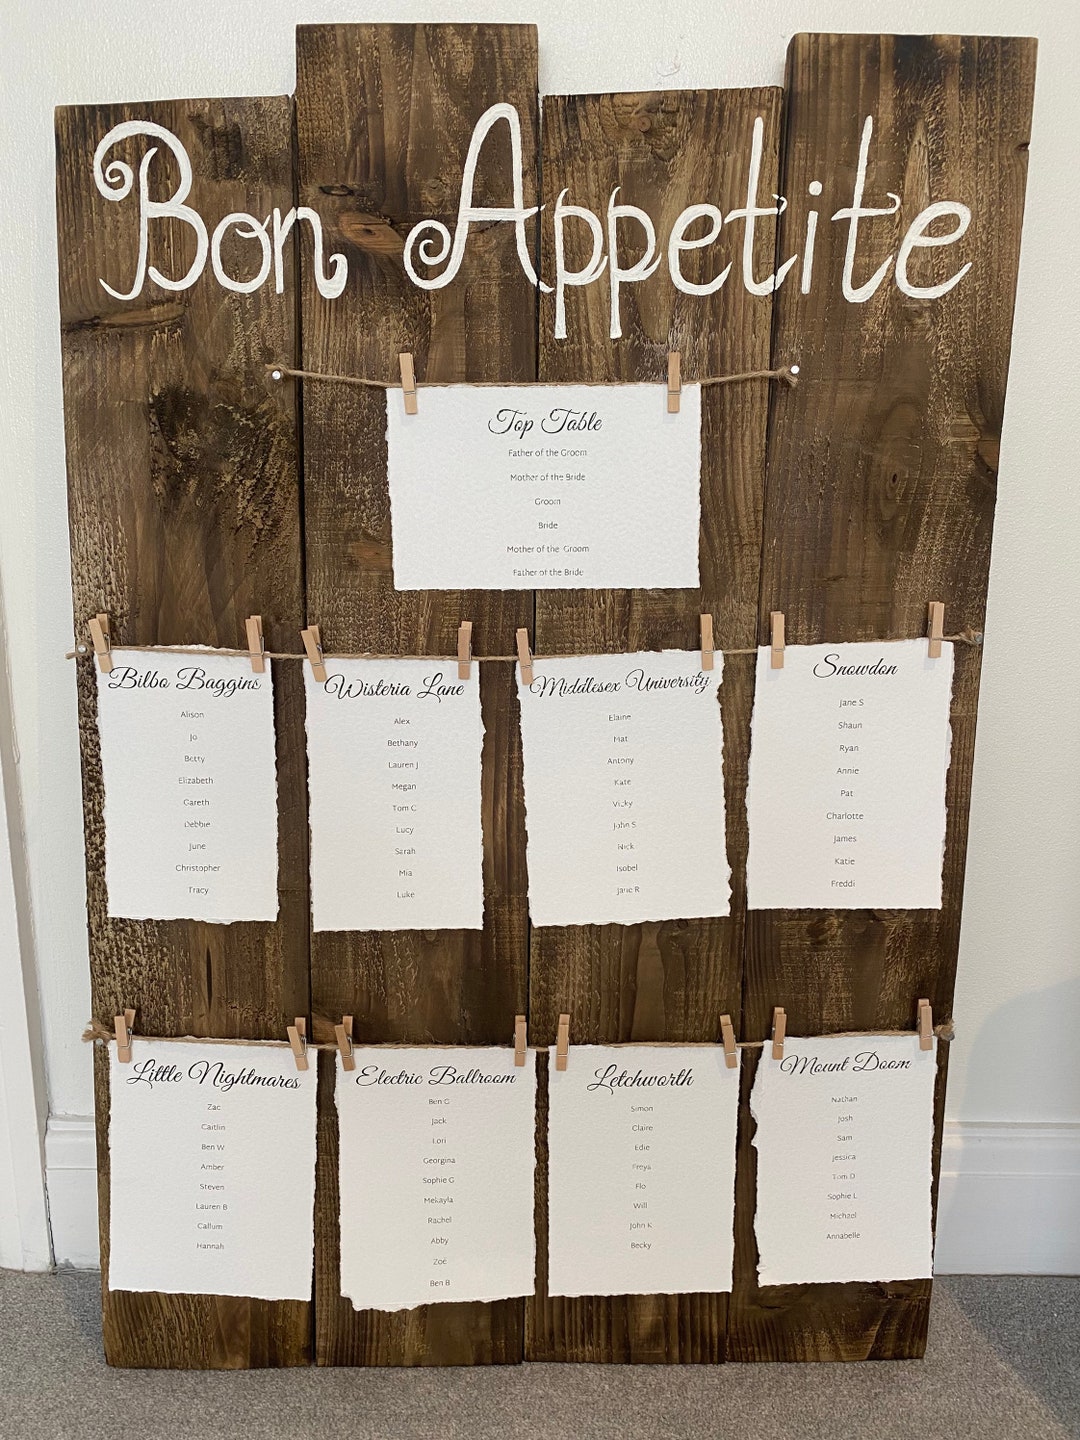 Bon Appetite
Top Table
Father of the Groom
Mother of the Bride
Groom
Bride
Mother of the Groom
Father of the Bride
Bilbo Baggins
Alison
Jo
Betty
Elizabeth
Gareth
Debbie
June
Christopher
Tracy
Wisteria Lane
Alex
Bethany
Lauren J
Megan
Tom C
Lucy
Sarah
Mia
Luke
Middlesex University
Elaine
Mat
Antony
Kate
Vicky
John S
Nick
Isobel
Jane R
Snowdon
Jane S
Shaun
Ryan
Annie
Pat
Charlotte
James
Katie
Freddi
Little Nightmares
Zac
Caitlin
Ben W
Amber
Steven
Lauren B
Callum
Hannah
Electric Ballroom
Ben G
Jack
Lori
Georgina
Sophie G
Mekayla
Rachel
Abby
Zoë
Ben B
Letchworth
Simon
Claire
Edie
Freya
Flo
Will
John K
Becky
Mount Doom
Nathan
Josh
Sam
Jessica
Tom D
Sophie L
Michael
Annabelle